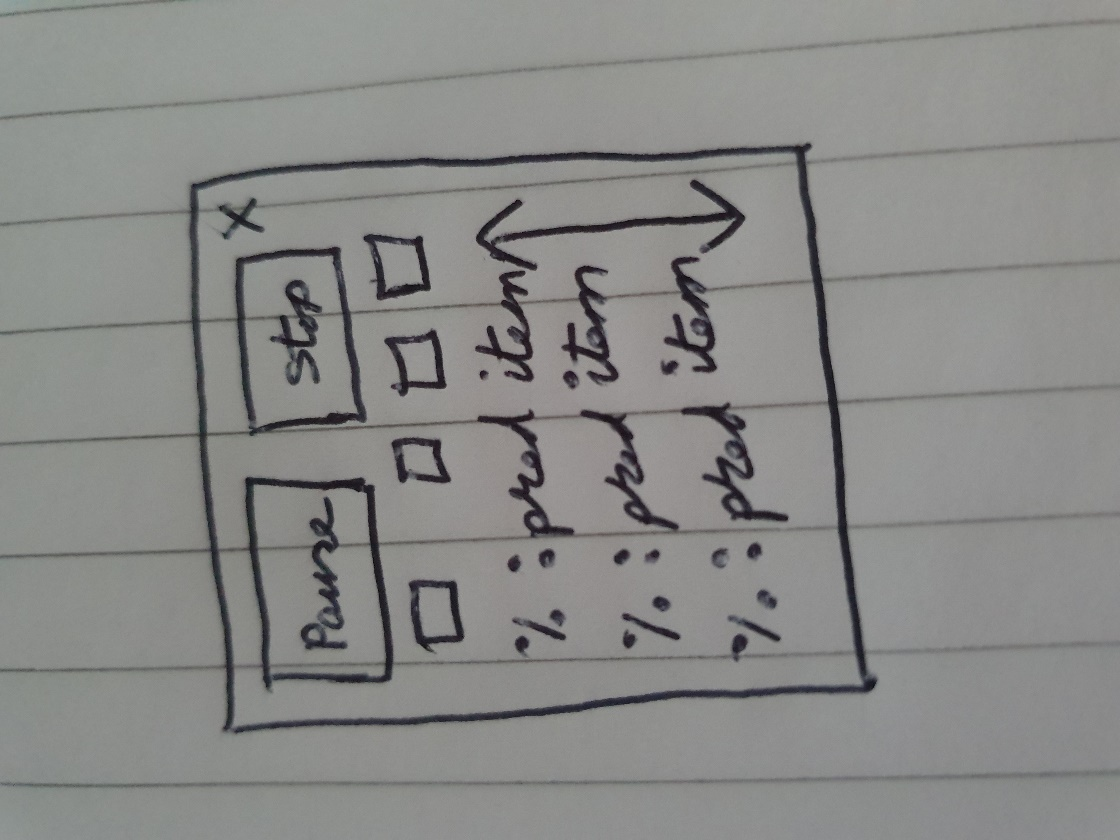 X
Pause Stop
% : pred item
% : pred item
% : pred item